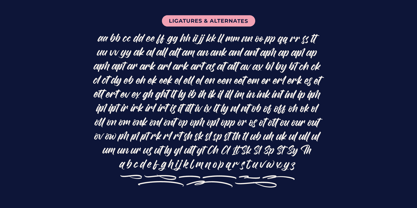 LIGATURES & ALTERNATES
aa bb cc dd ee ff gg hh ii jj kk ll mm nn oo pp qq rr ss tt
uu vv yy ak al all alt am an ank anl ant aph ap apl ap
aph apt ar ark arl ark art as at alt av ax bl by bt ch ck
cl ct dy eb eh ek eek el ell el en een eet em er erl er es et
ett ert ev ex gh ght ll ly lb ih ik il ill im in ink int inl ip iph
ipl ipt ir irk irl irt is it itt iv ix ll ly nl nt ob of off oh ok ol
oll on om onk onl ont op oph opl opp or os ot ott ou our out
ov ow ph pl pt rk rl rt sh sk sl sp st th tl ub uh uk ul ull ul
um un ur us ut ly yl utt yt Ch Cl ll Sk Sl Sp St Sy Th
a b c d e f g h i j k l m n o p q r s t u v w x y z